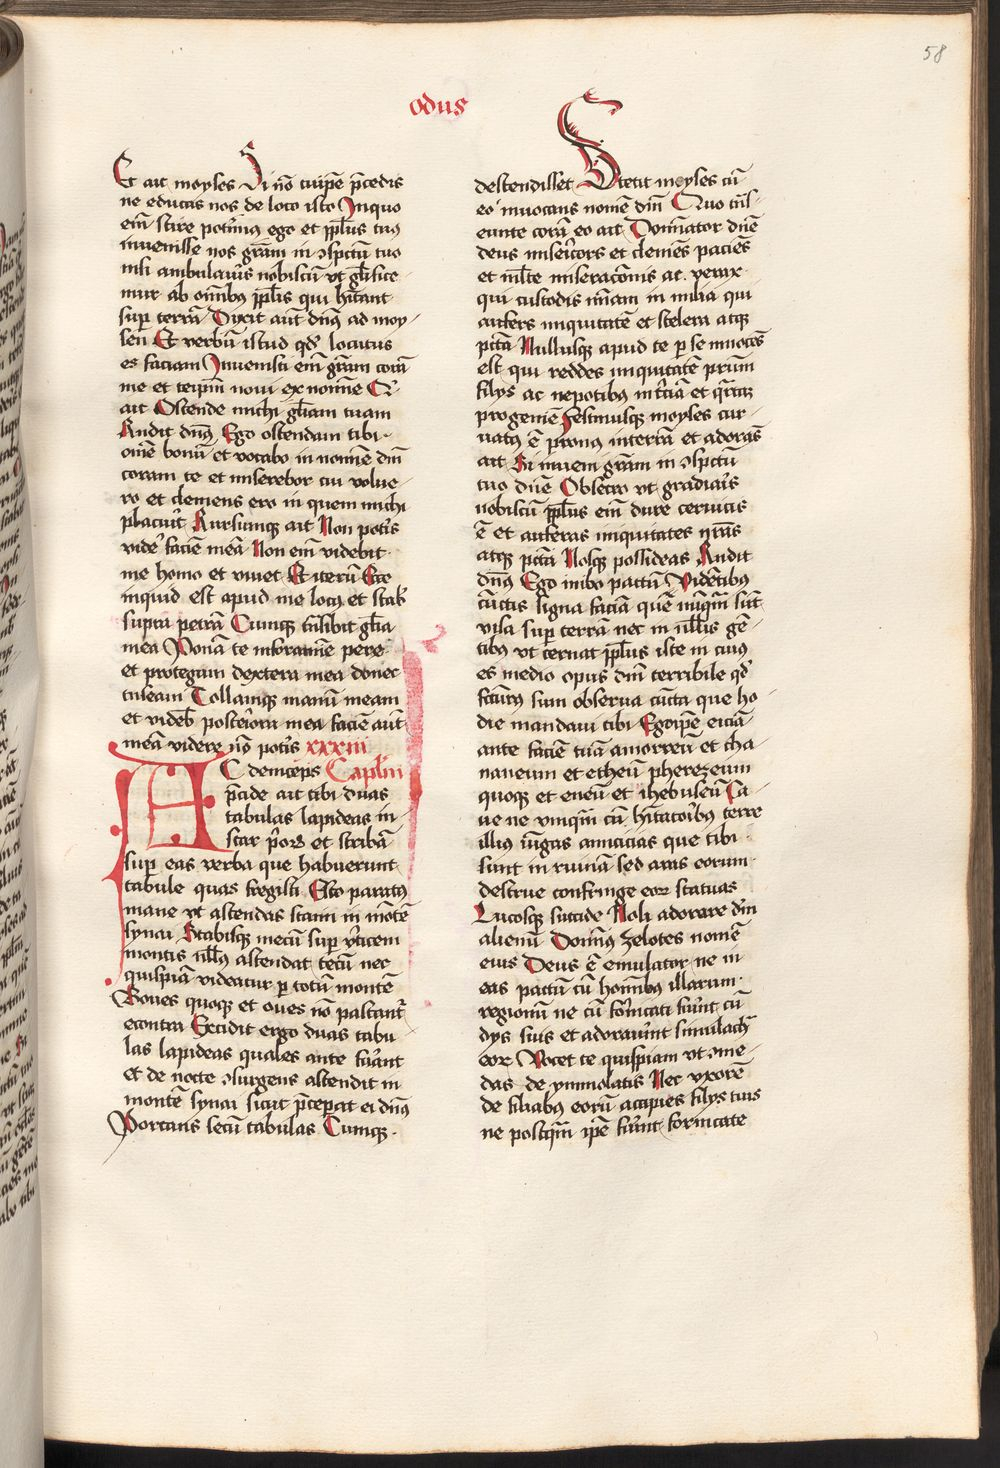 58
odus
Et ait moyses Si nō tu ip̄e p̄cedis
ne educas nos de loco isto Inquo
em̄ scire poterimꝰ ego et ppl̄us tuꝰ
invenisse nos gr̄am in ↄspctū tuo
nisi ambulaueris nobiscū vt gl̄ifice
mur ab om̄ibꝰ ppl̄is qui hītant
sup terrā Dixit aūt dn̄s ad moy
sen Et verbū istud qd̓ locutus
es faciam Invenisti em̄ gr̄am corā
me et teip̄m novi ex nomine Cui
ait Ostende michi gl̄iam tuam
Rn̄dit dn̄s Ego ostendam tibi
om̄e bonū et vocabo in nomine dn̄i
coram te et miserebor cui volue
ro et clemens ero in quem michi
placuerit Rursumqꝫ ait Non poteris
videre faciē meā Non em̄ videbit
me homo et vivet Et iterū Ecce
inquid est apud me locꝰ et stab
supra petrā Cumqꝫ trāsibit gl̄ia
mea Ponā te in foramīe petre
et protegam dextera mea donec
trāseam Tollamqꝫ manū meam
et videbis posteriora mea faciē aūt
meā videre nō poteris xxxiiii
AC deinceps Caplm̄
p̄cide ait tibi duas
tabulas lapideas in
star p̄orꝝ et scribā
sup eas verba que habuerunt
tabule quas fregisti Esto paratꝰ
mane vt ascendas statim in mōtē
synai Stabisqꝫ mecū sup verticem
montis nullꝰ ascendat tecū nec
quispiā videatur p totū montē
Boues quoqꝫ et oves nō pascantr̄
econtra Excidit ergo duas tabu
las lapideas quales ante fūant
et de nocte ↄsurgens ascendit in
montē synai sicut p̄ceperat ei dn̄s
Portans secū tabulas Cumqꝫ
descendisset Stetit moyses cū
eo invocans nomē dn̄i Quo trās
eunte corā eo ait Dominator dn̄e
deus misericors et clemēs paciēs
et ml̄te miseracōnis ac verax
qui custodis mīam in milia qui
aufers iniquitatē et scelera atqꝫ
pctā Nullusqꝫ apud te p se innocēs
est qui reddes iniquitatē patrum
filijs ac nepotibus in terciā et quartā
progeniē Festinusqꝫ moyses cur
vatꝰ ē pronus in terrā et adorās
ait Si inveni gr̄am in ↄspctū
tuo dn̄e Obsecro vt gradiaris
nobiscū ppl̄us em̄ dure cervicis
ē et auferas iniquitates nr̄as
atqꝫ pctā Nosqꝫ possideas Rn̄dit
dn̄s Ego inibo pactū Vidētibus
cūctis signa faciā que nūqm̄ sūt
visa sup terrā nec in ullis gē
tibus vt cernat ppl̄us iste in cuiꝰ
es medio opus dn̄i terribile qd̓
facturꝰ sum observa cūcta que ho
die mandavi tibi Ego ip̄e eiciā
ante faciē tuā amorreū et cha
naneum et etheū pherezeum
quoqꝫ et eueū et ihebuseū Ca
ue ne vnqm̄ cū hītatoribꝰ terre
illiꝰ iūgas amicicias que tibi
sint in ruinā sed aras eorum
destrue confringe eorꝝ statuas
Lucosqꝫ succide Noli adorare deum
alienū Dominꝰ zelotes nomē
eius Deus ē emulator ne in
eas pactū cū hominibꝰ illarum
regionū ne cū fornicati fūint cū
dijs suis et adoraūint simulachra
eorꝝ Vocet te quispiam vt ↄme
das de ymmolatis Nec vxorē
de filiabꝰ eorū accipies filijs tuis
ne postqm̄ ip̄e fūint fornicate